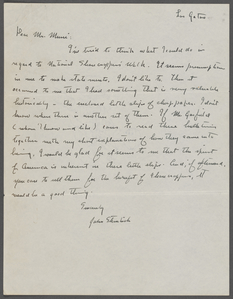 Los Gatos
Dear Mr. Meeri:
I've tried to think what I could do in
regard to United Shenanigans Week. It seems presumption
in me to make statements. I don't like to. Then it
occurred to me that I had something that is very valuable
historically. The enclosed little slips of cheap paper. I don't
know where there is another set of them. If Mr Garfield
(whom I know and like) cares to read these bulletins
together with my short explanations of how they came into
being, I would be glad for it seems to me that the spirit
of America is inherent in these little slips. And, if afterward,
you care to sell them for the benefit of the
would be a good thing
Sincerely
John Steinbeck